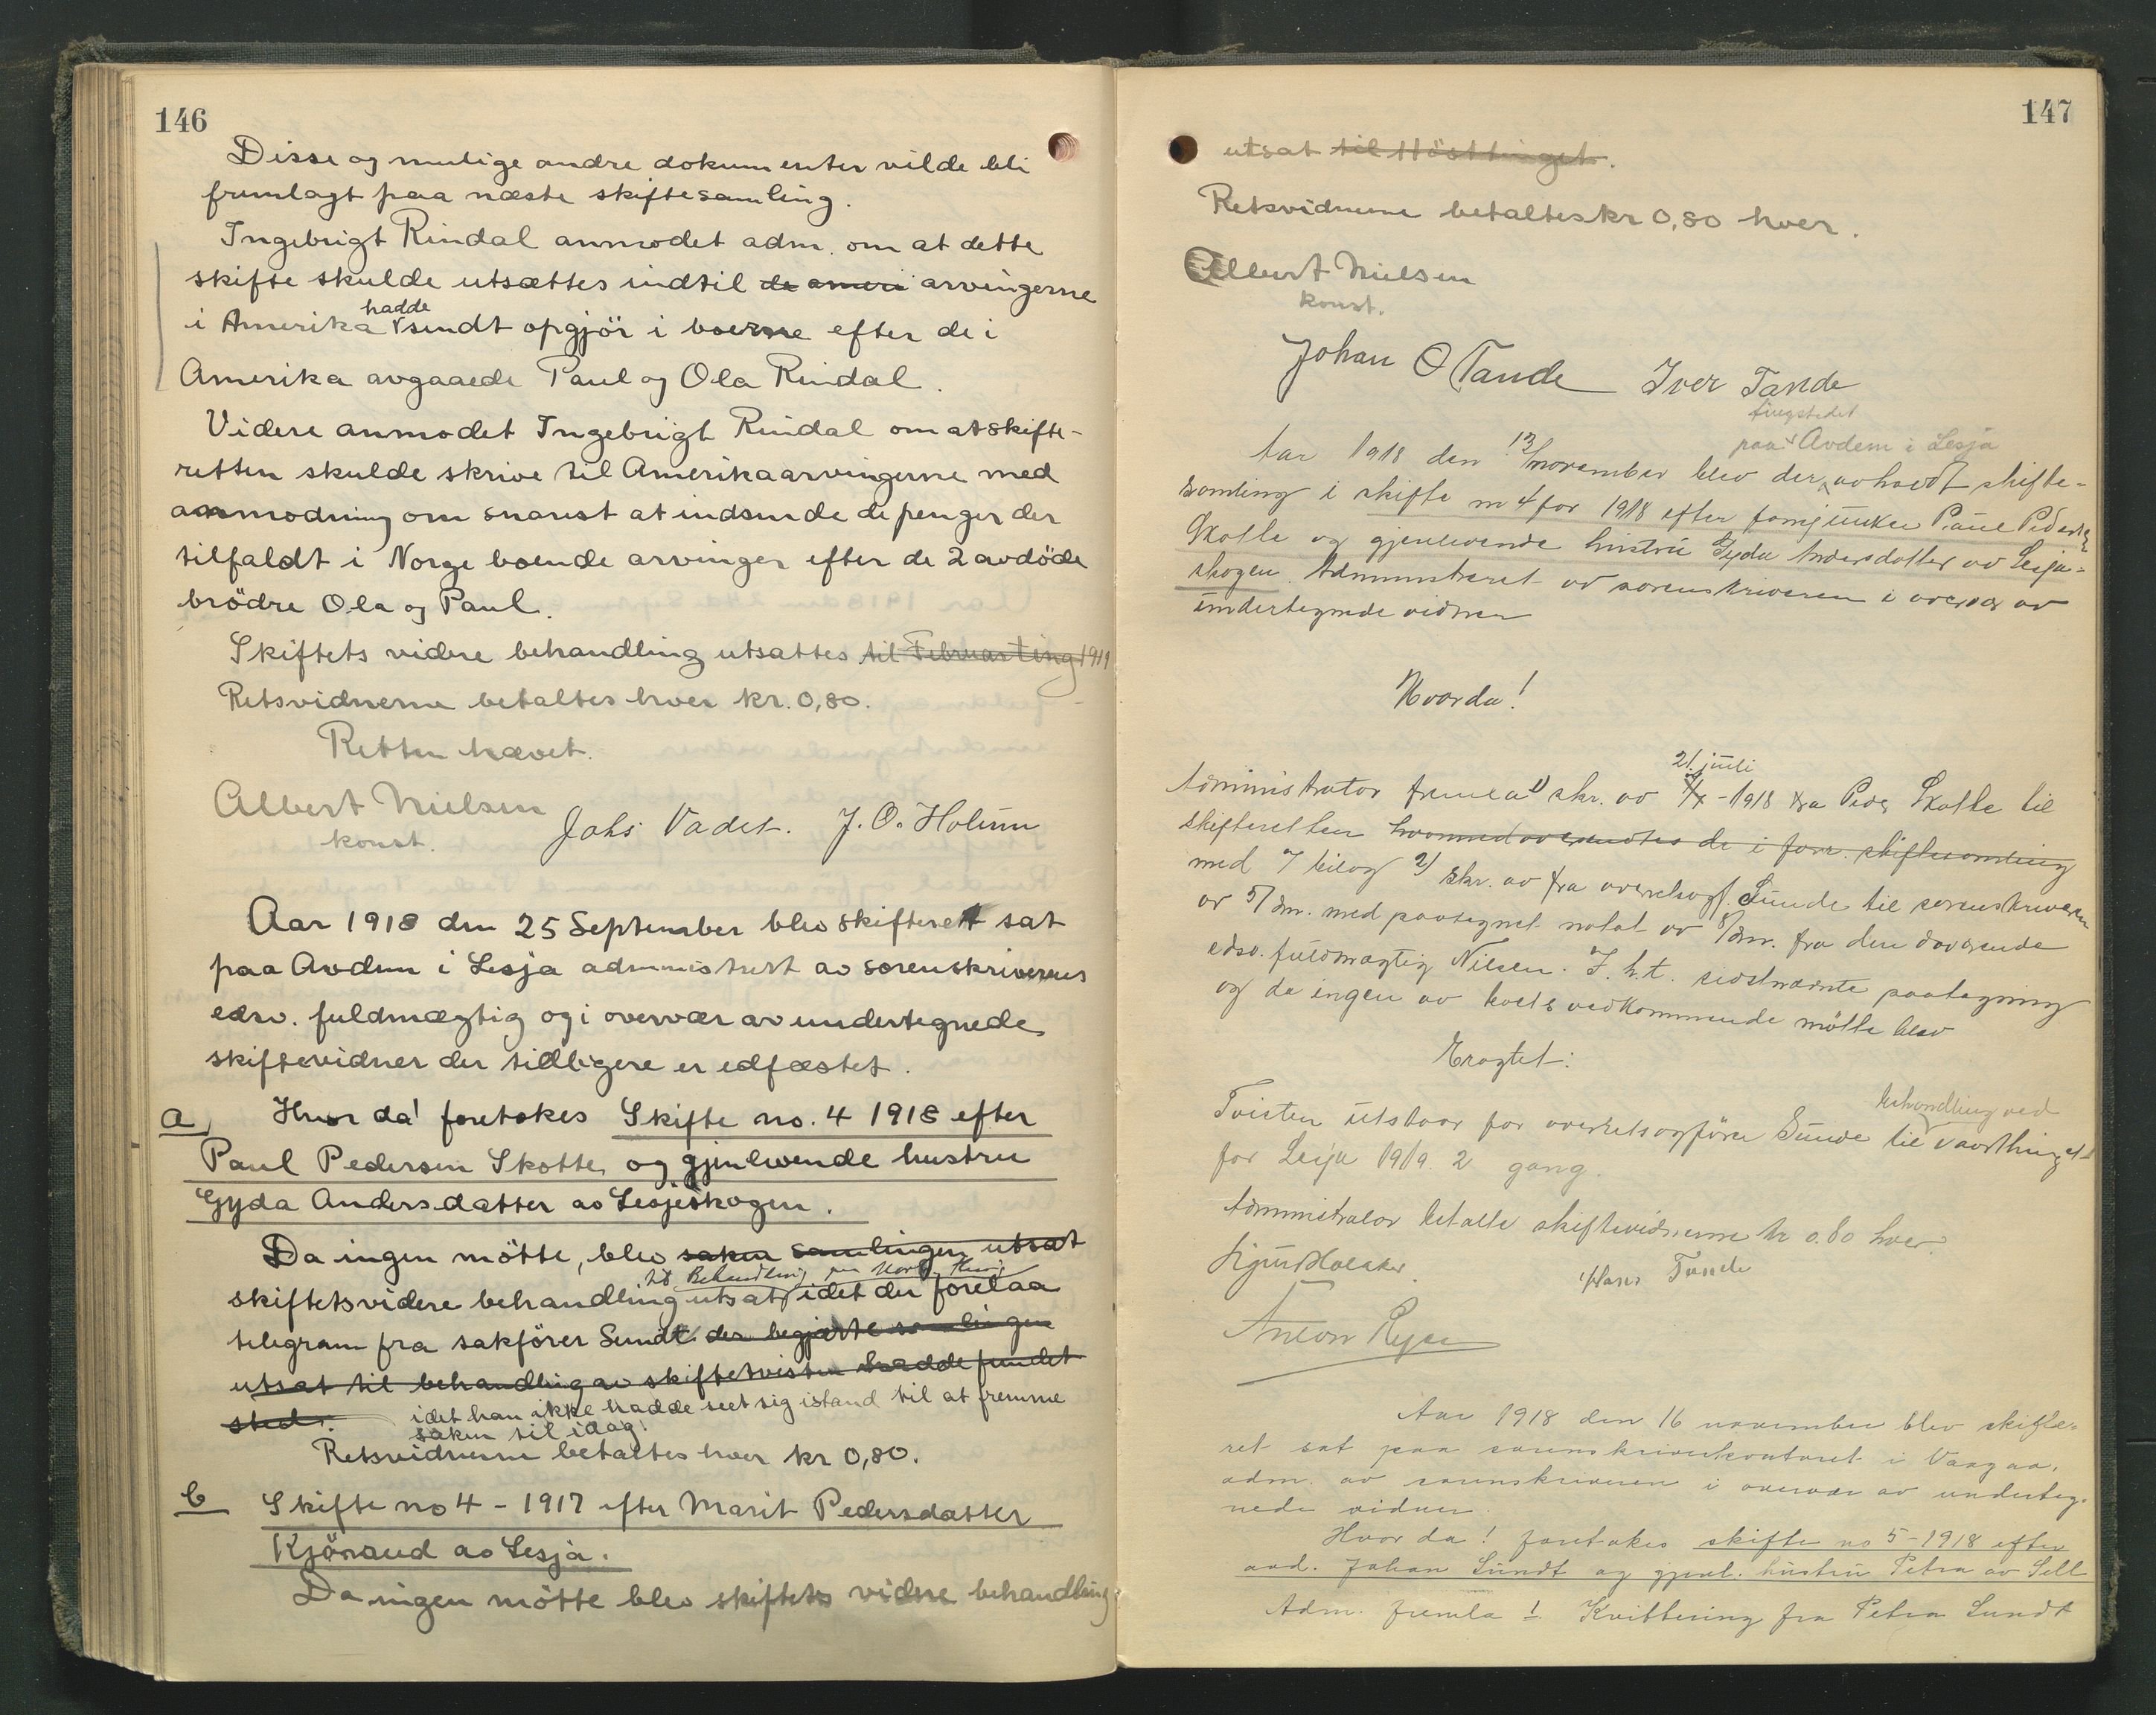 146
Disse og mulige andre dokumenter vilde bli
fremlagt paa næste skiftesamling.
Ingebrigt Rindal anmodet adm. om at dette
skifte skulde utsættes indtil de ameri arvingerne
i Amerika hadde sendt opgjör i boerne efter de i
Amerika avgaaede Paul og Ola Rindal.
Videre anmodet Ingebrigt Rindal om at skifte-
retten skulde skrive til Amerikaarvingerne med
anmodning om snarest at indsende de penger der
tilfaldt i Norge boende arvinger efter de 2 avdöde
brödre Ola og Paul.
Skiftets videre behandling utsattes til Februarting 1919
Retsvidnerne betaltes hver kr. 0,80.
Retten hævet.
Albert Nielsen
konst.
Johs Vadet. J. O. Holum
Aar 1918 den 25 September blev skifterett sat
paa Avdem i Lesja administrert av sorenskriverens
edsv. fuldmægtig og i overvær av undertegnede
skiftevidner der tidligere er edfæstet.
a Hvor da! foretokes Skifte no. 4 1918 efter
Paul Pedersen Skotte og gjenlevende hustru
Gyda Andersdatter av Lesjeskogen.
Da ingen mötte, blev saken samlingen utsat
til Behandling paa
skiftets videre behandling utsat idet der forelaa
telegram fra sakförer Sundt der begjærte samlingen
utsat til behandling av skiftetvisten hadde fundet
sted. idet han ikke hadde seet sig istand til at fremme
saken til idag.
Retsvidnerne betaltes hver kr 0,80.
b Skifte no 4 - 1917 efter Marit Pedersdatter
Kjörand av Lesja.
Da ingen mötte blev skiftets videre behandling
147
utsat til Hösttinget.
Retsvidnerne betaltes kr 0,80 hver.
Albert Nielsen
konst.
Johan O Tande Iver Tande
tingstedet
paa Avdem i Lesja
Aar 1918 den 13/november blev der avholdt skifte-
samling i skifte nr 4 for 1918 efter Paul Pedersen
Skotte og gjenlevende hustru Gyda Andersdatter av Lesja-
skogen. Administreret av sorenskriveren i overvær av
undertegnede vidner
Hvorda!
21. juli
Administrator fremla 1) skr. av 1918 fra Peder Skotte til
skifteretten hvormed oversendtes de i forr. skiftesamling
med 7 bilag 2) skr. av fra overretssagf. Sunde til sorenskriveren
av 5/dm. med paategnet notat av 8/dm. fra den daværende
edsv. fuldmægtig Nilsen. I. h. t. sidstnævnte paategning
og da ingen av boets vedkommende mötte blev
Eragtet:
behandling ved
Tvisten utstaar for overretssagförer Sunde til vaarthinget
for Lesja 1919. 2 gang.
Administrator betalte skiftevidnerne kr 0.80 hver.
Sigurd Holaker Hans Tande
Anton
Aar 1918 den 16 november blev skifte-
ret sat paa sorenskriverkontoret i Vaagaa,
adm. av sorenskriveren i overvær av underteg-
nede vidner.
Hvor da! foretokes skifte no 5-1918 efter
avd. Johan Sundt og gjenl. hustru Petra av Sell
Adm. fremla 1 Kvittering fra Petra Sundt